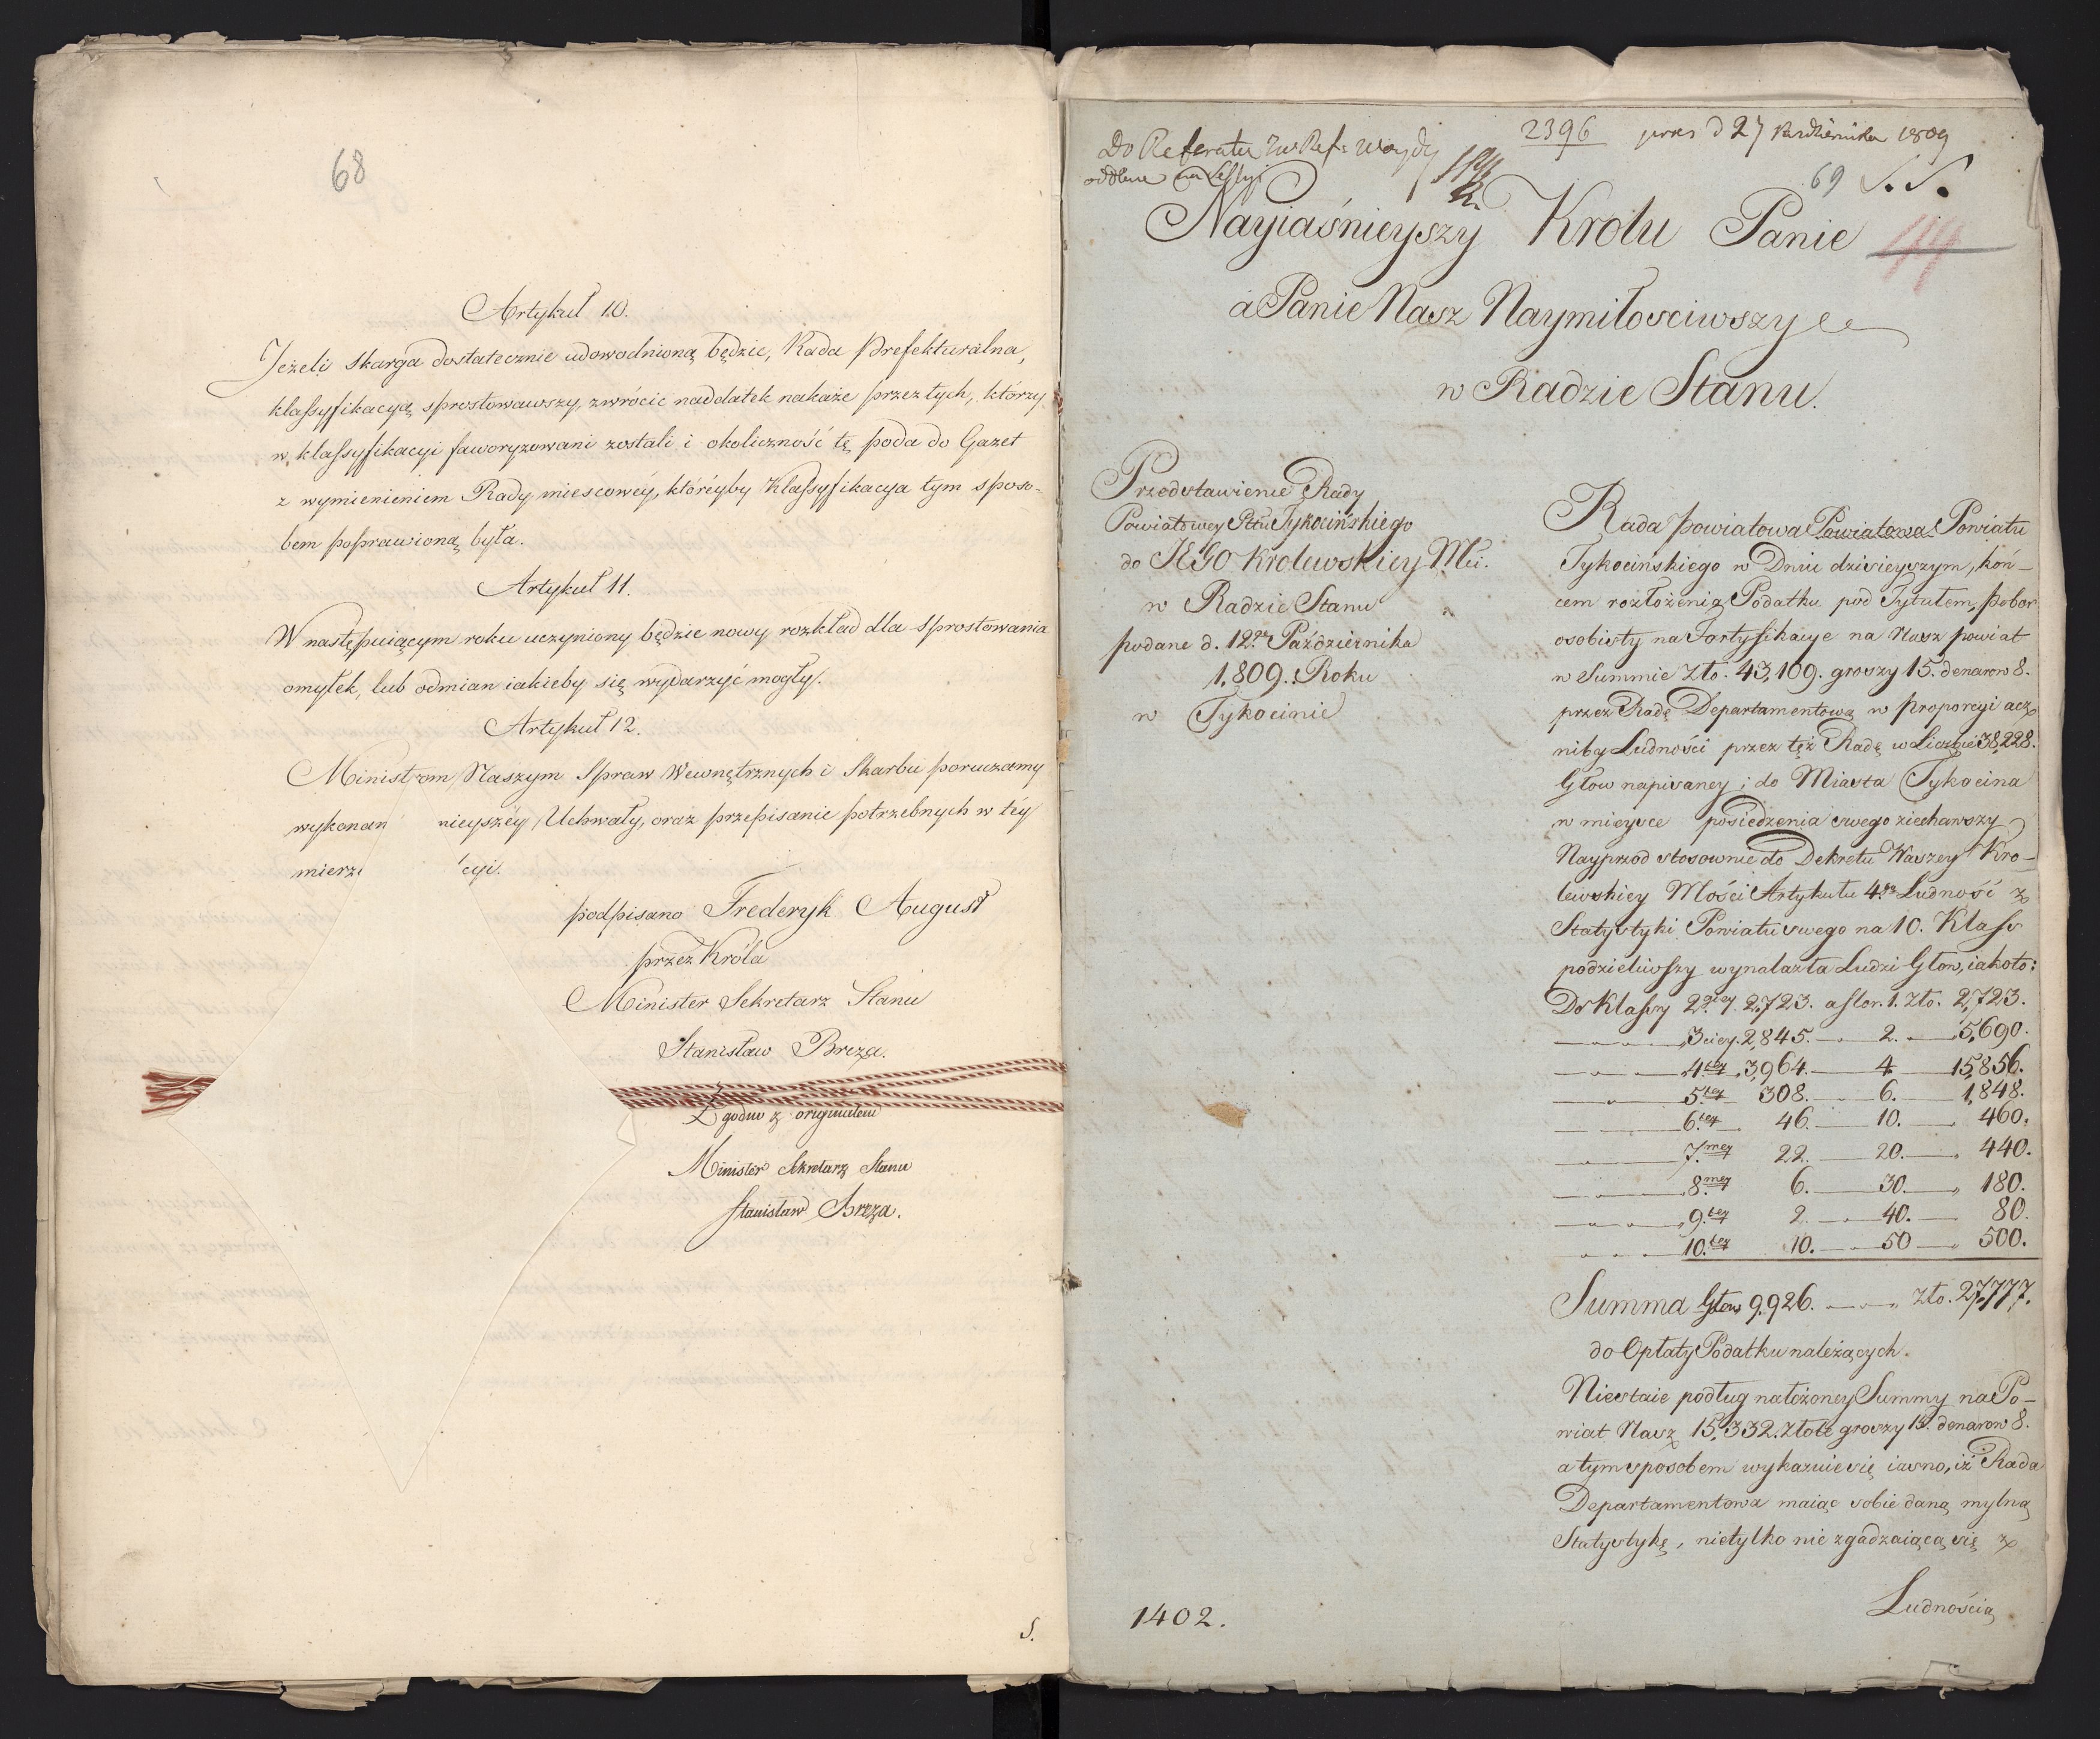 68
Artykuł 10.
Jeżeli skarga dostatecznie udowodnioną będzie, Rada Prefekturalna,
klassyfikacyą sprostowawszy, zwrócić naddatek nakaże przez tych, którzy
w klassyfikacyi faworyzowani zostali i okoliczność tę poda do Gazet
z wymienieniem Rady miescowéy, któréyby Klassyfikacya tym sposo-
bem poprawioną była.
Artykuł 11.
W następuiącym roku uczyniony będzie nowy rozkład dla sprostowania
omyłek, lub odmian iakieby się wydarzyć mogły.
Artykuł 12.
Ministrom Naszym Spraw Wewnętrznych i Skarbu poruczamy
wykonan nieyszéy Uchwały, oraz przepisanie potrzebnych w téy
mierz cyi.
podpisano Frederyk August
przez Króla
Minister Sekretarz Stanu
Stanisław Breza.
Zgodno z originałem
Minister Sekretarz Stanu
Stanisław Breza.
S.
2396 pres d 27 Października 1809
Do Referatu Ref: Woydy
oddane na Sessyi
69 S.
44
Nayiaśnieyszy Krolu Panie
a Panie Nasz Naymiłosciwszy
w Radzie Stanu.
Przedstawienie Rady
Powiatowey Pttu Tykocińskiego
do JEGO Krolewskiey Mci.
w Radzie Stanu
podane d. 12go Października
1,809. Roku
w Tykocinie
Rada powiatowa Powiatowa Powiatu
Tykocińskiego w Dniu dzisieyszym, koń-
cem rozłożenia Podatku pod Tytułem, pobor
osobisty na Fortyfikacye na Nasz powiat
w Summie Zło. 43,109. groszy 15. denarow 8.
przez Radę Departamentową w proporcyi acz
niby Ludności przez tęż Radę w Liczbie 38,228.
Głow napisaney; do Miasta Tykocina
w mieysce posiedzenia swego ziechawszy
Nayprzod stosownie do Dekretu Waszey Kro-
lewskiey Mości Artykułu 4go Ludność z
Statystyki Powiatu swego na 10. Klass
podzieliwszy wynalazła Ludzi Głow, iako to:
Do Klassy 2giey 2,723. a flor. 1. Zło. 2,723.
3ciey. 2,845. 2. 5,690.
4tey 3,964. 4 15,856.
5tey 308. 6. 1,848.
6tey 46. 10. 460.
7mey 22. 20. 440.
8mey 6. 30. 180.
9tey 2. 40. 80.
10tey 10. 50 500.
Summa Głow 9,926. Zło. 27,777.
do Opłaty Podatku należących.
Niestaie podług nałożoney Summy na Po-
wiat Nasz 15,332. Złote groszy 15. denarow 8.
a tym sposobem wykazuie się iasno, iż Rada
Departamentowa maiąc sobie daną mylną
Statystykę, nietylko nie zgadzaiącą się z
Ludnością
1402.